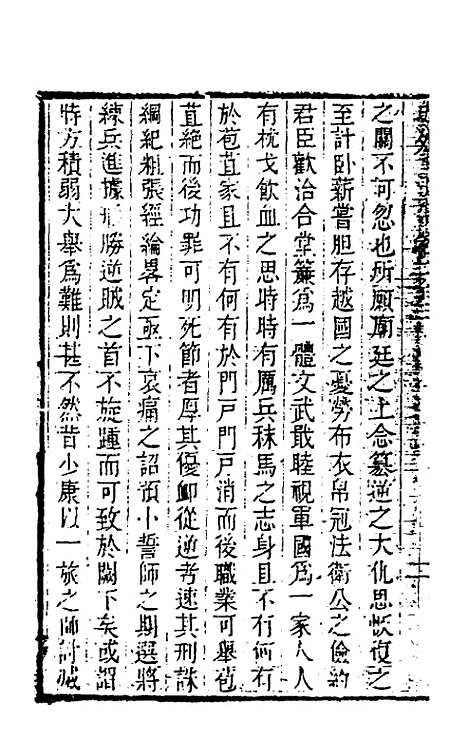 之關不可忽也所願廟廷之上念篡逆之大仇思恢復之
至計臥薪嘗胆存越國之憂勞布衣帛冠法衛公之儉約
君臣歡洽合堂簾爲一體文武戢睦視軍國爲一家人人
有枕戈飲血之思時時有厲兵秣馬之志身且不有何有
於苞苴家且不有何有於門戸門戸消而後職業可舉苞
苴絶而後功罪可明死節者厚其優卹從逆者速其刑誅
綱紀粗張經綸畧定亟下哀痛之詔頒小誓師之期選將
練兵進據勝逆賊之首不旋踵而可致於闕下矣或謂
時方積弱大舉爲難則甚不然昔少康以一旅之師討